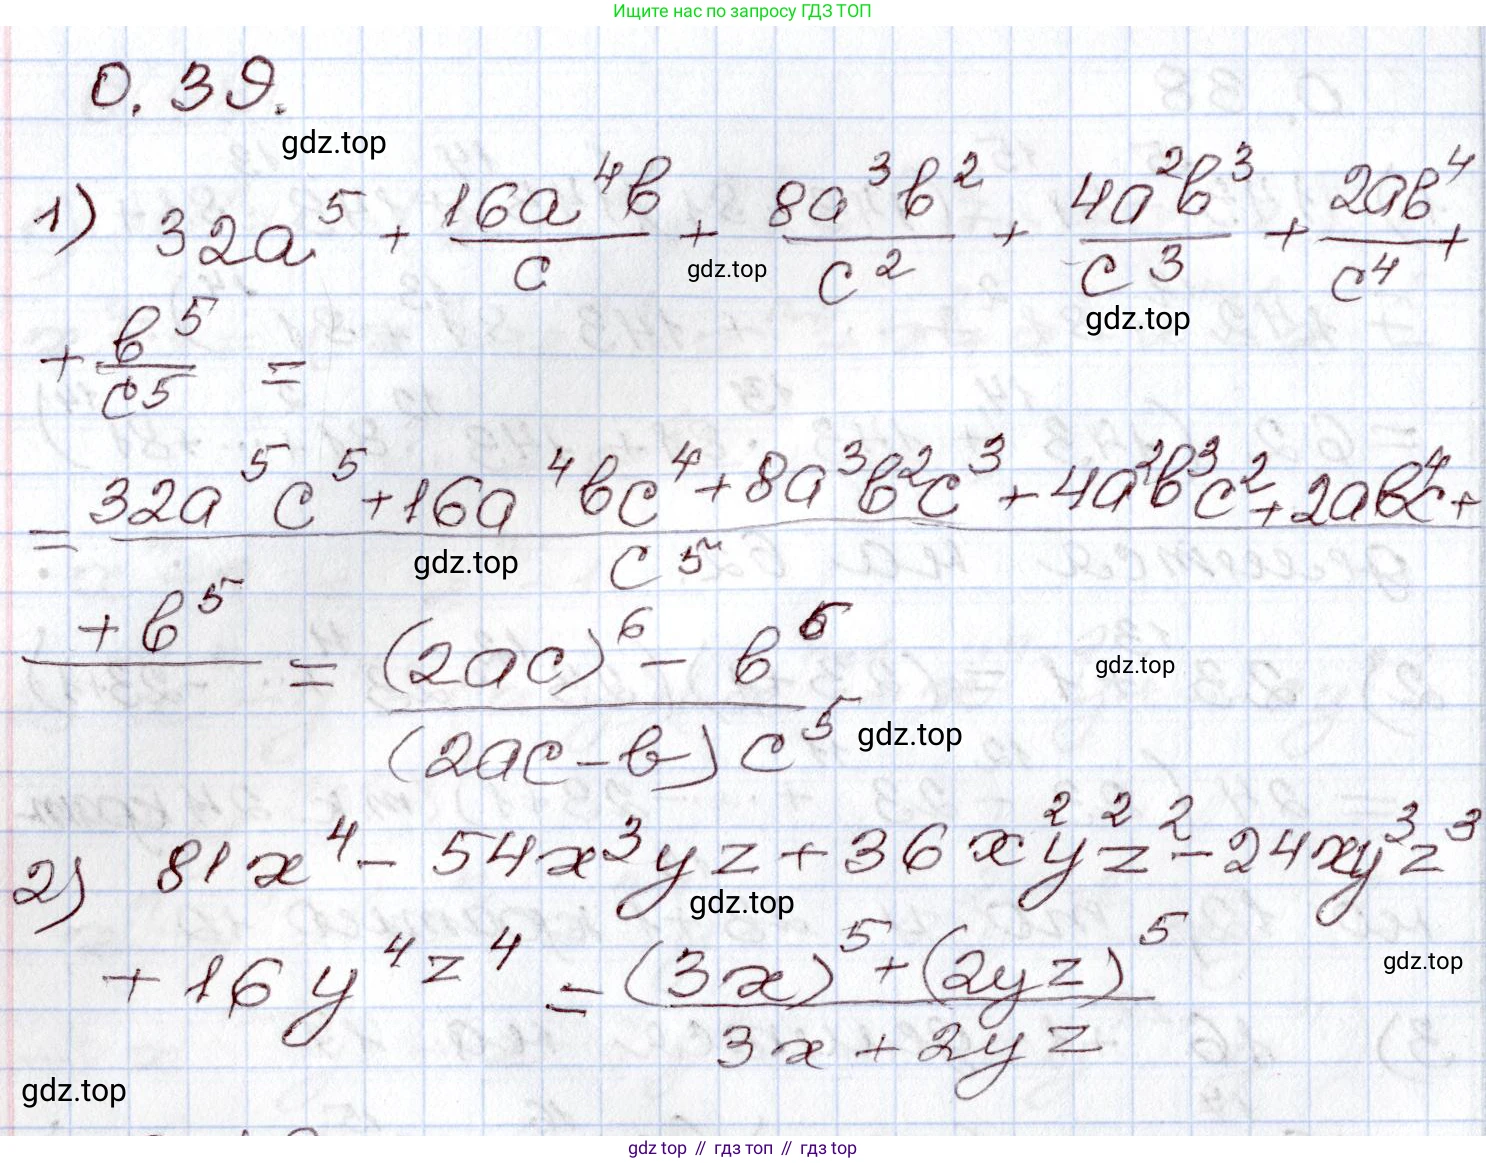 Ищите нас по запросу ГДЗ ТОП
0.39.
gdz.top
1) 32a⁵ + 16a⁴b/c + 8a³b²/c² + 4a²b³/c³ + 2ab⁴/c⁴ +
gdz.top
gdz.top
+ b⁵/c⁵ =
= 32a⁵c⁵ + 16a⁴bc⁴ + 8a³b²c³ + 4a²b³c² + 2ab⁴c +
gdz.top
c⁵
+ b⁵ = (2ac)⁶ - b⁶/(2ac - b)c⁵
gdz.top
gdz.top
2) 81x⁴ - 54x³yz + 36x²y²z² - 24xy³z³
gdz.top
+ 16y⁴z⁴ = (3x)⁵ + (2yz)⁵/3x + 2yz
gdz.top
gdz.top
gdz top // гдз топ // гдз top